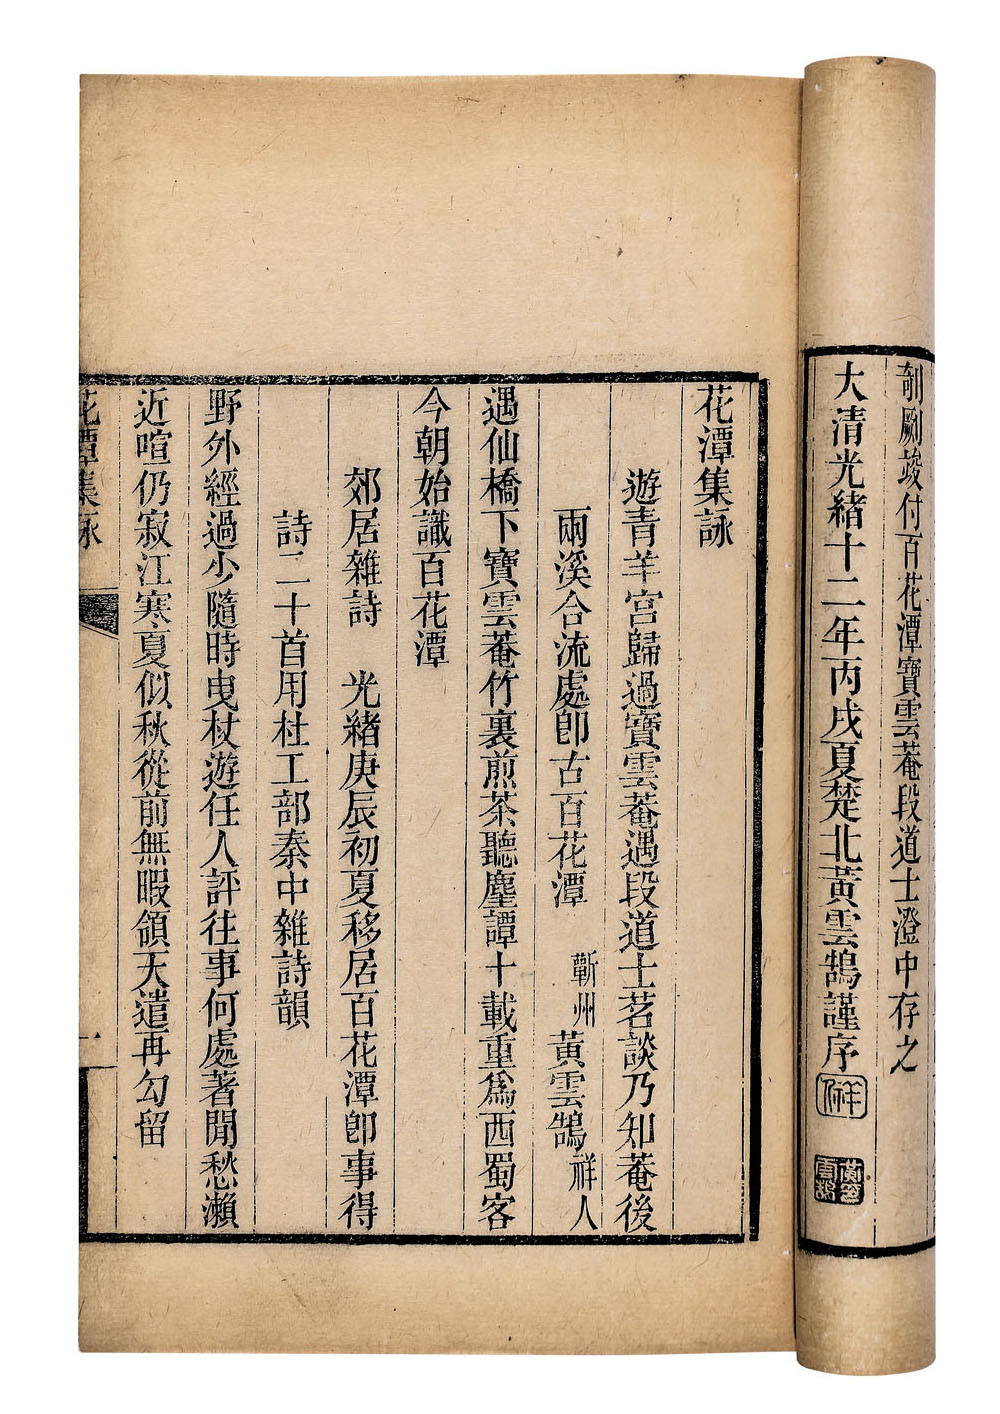 剞劂竣付百花潭寶雲菴段道士澄中存之
大清光緒十二年丙戌夏楚北黃雲鵠謹序
祥人
黃雲鵠
花潭集詠
遊青羊宮歸過寶雲菴遇段道士茗談乃知菴後
兩溪合流處卽古百花潭 蘄州 黃雲鵠 祥人
遇仙橋下寶雲菴竹裏煎茶聽麈譚十載重爲西蜀客
今朝始識百花潭
郊居雜詩 光緒庚辰初夏移居百花潭卽事得
詩二十首用杜工部秦中雜詩韻
野外經過少隨時曳杖遊任人評往事何處著閒愁瀨
近喧仍寂江寒夏似秋從前無暇領天遣再勾留
花潭集詠
一